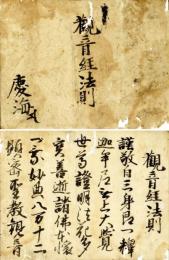 觀音經法則
慶海
觀音經法則
謹敬白三身即一釋
迦牟尼如上大覺
世尊證明法花多
寶善逝諸佛本懷
一乘妙典八万十二
顯密聖教觀音